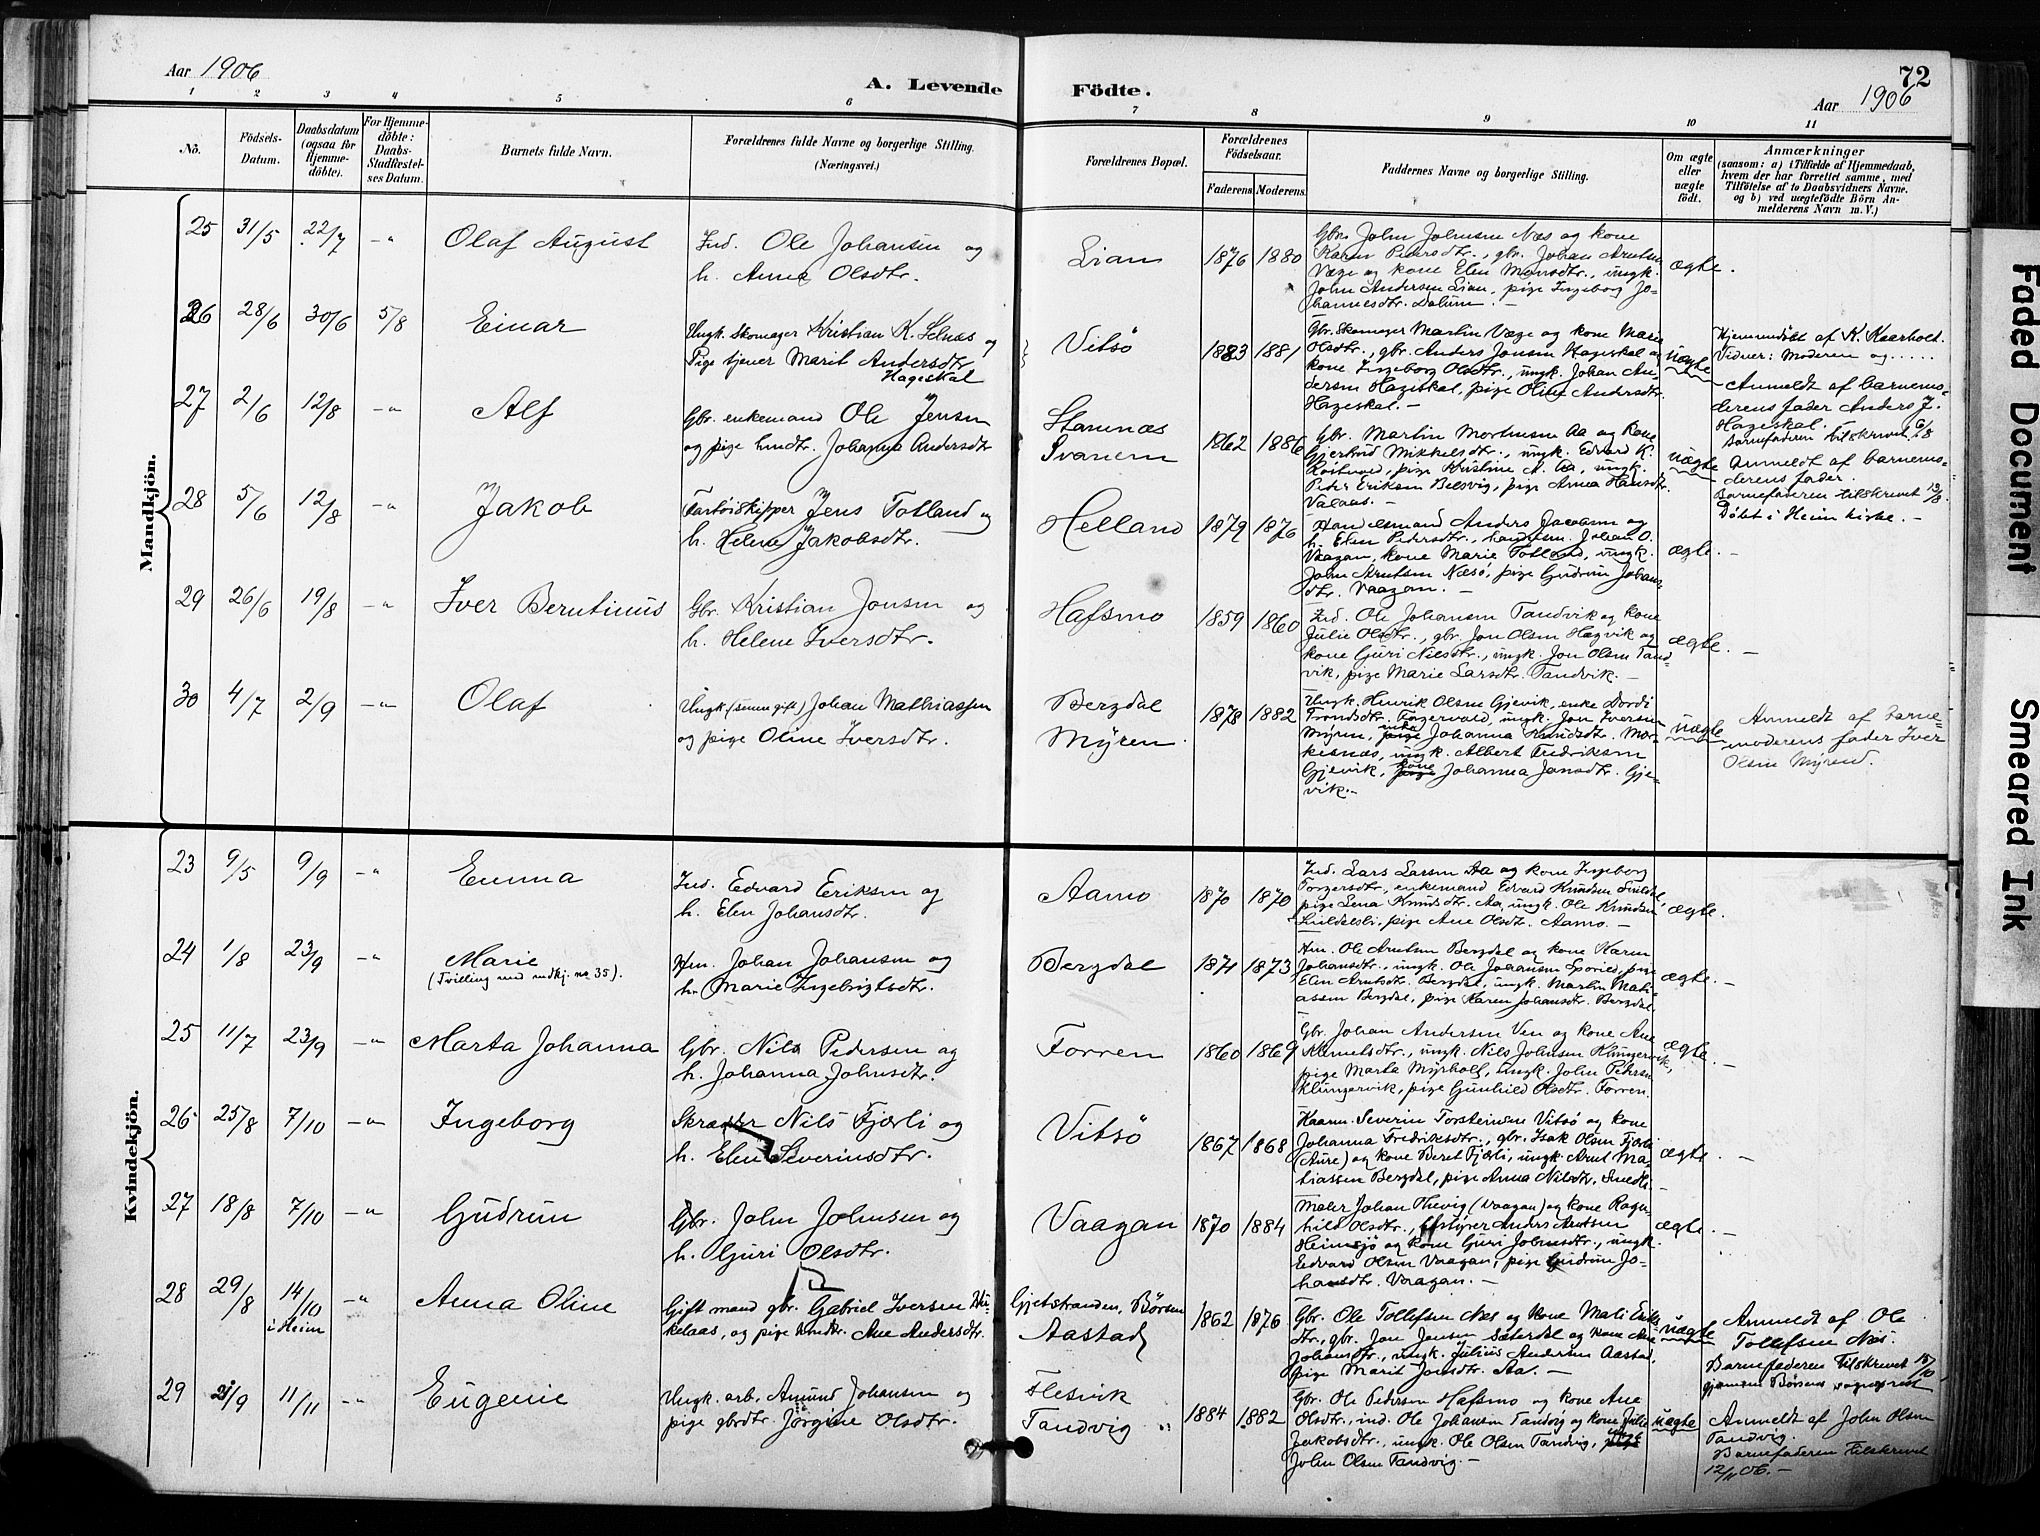 Aar 1906
A. Levende
Födte.
72
Aar 1906
1 2 3 4 5 6 7 8 9 10 11
No.
Födsels-
Datum.
Daabsdatum
(ogsaa for
Hjemme-
döbte).
For Hjemme-
döbte:
Daabs-
Stadfæstel-
ses Datum.
Barnets fulde Navn.
Forældrenes fulde Navne og borgerlige Stilling.
(Næringsvei.)
Forældrenes Bopæl.
Forældrenes
Födselsaar.
Faderens. Moderens.
Faddernes Navne og borgerlige Stilling.
Om ægte
eller
uægte
födt.
Anmærkninger
(saasom: a) i Tilfælde af Hjemmedaab,
hvem der har forrettet samme, med
Tilföielse af to Daabsvidners Navne.
og b) ved uægtefödte Börn An-
melderens Navn m. V.)
Mandkjön.
25 31/5 22/7 -"- Olaf August
Ind. Ole Johansen og
h. Anna Olsdtr.
Lian 1876 1880
Gbr. John Johnsen Næs og kone
Karen Pedersdtr., gbr. Johan Arntsen
Væge og kone Elen Monsdtr., ungk.
John Andersen Lian, pige Ingeborg Jo-
hannesdtr. Dalum. -
ægte.
26 28/6 30/6 5/8 Einar
Ungk. Skomager Kristian K. Selnæs og
Pige tjener Marit Andersdtr
Hageskal
Vitsö 1883 1881
Gbr. Skomager Martin Væge og kone Marie
Olsdtr., gbr. Anders Jonsen Hageskal og
kone Ingeborg Olsdtr., ungk. Johan An-
dersen Hageskal, pige Oline Andersdtr.
Hageskal. -
uægte
Hjemmedöbt af K. Kaarhold.
Vidner: Moderen og .....
Anmeldt af barnemo-
derens fader Anders J.
Hageskal.
Barnefaderen tilskrevet 6/8
27 2/6 12/8 -"- Alf
Gbr. enkemand Ole Jensen
og pige hmdtr. Johanna Andersdtr
Stamnæs
Svanem
1862 1886
Gbr. Martin Mortensen Aa og kone
Gjertrud Mikkelsdtr., ungk. Edvard K.
pige Kristine A. Aa, ungk.
Peter Eriksen Belsvig, pige Anna Hansdtr.
Valaas. -
uægte
Anmeldt af barnemo-
derens fader.
Barnefaderen tilskrevet 13/8.
Döbt i Heim kirke. -
28 5/6 12/8 -"- Jakob
Fartöiskipper Jens Totland og
h. Helene Jakobsdtr.
Helland 1879 1876
Handelsmand Anders Jacobsen og
h. Elen Pedersdtr., handelsm. Johan O.
Vaagan, kone Marie Totland, ungk.
John Arntsen Næsö, pige Gudrun Johans-
dtr. Vaagan. -
ægte. -
29 26/6 19/8 -"- Iver Berntinus
Gbr. Kristian Jonsen og
h. Helene Iversdtr.
Hafsmo 1859 1860
Ind. Ole Johansen Tandvik og kone
Julie Olsdtr., gbr. Jon Olsen Hægvik og
kone Guri Nilsdtr., ungk. Jon Olsen Tand-
vik, pige Marie Larsdtr. Tandvik. -
ægte. -
30 4/7 2/9 -"- Olaf
Ungk. (senere gift) Johan Mathiassen
og pige Oline Iversdtr.
Bergdal
Myren
1878 1882
Ungk. Henrik Olsen Gjevik, enke Dordi
Trondsdtr. Fagervold, ungk. Jon Iversen
Myren, pige Johanna Knudsdtr. Mor-
kesnæs, ungk. Albert Fredriksen
Gjevik, kone Johanna Jonsdtr. Gje-
vik. -
uægte
Anmeldt af barne-
moderens fader Iver
Olsen Myrend.
Kvindekjön.
23 9/5 9/9 -"- Emma
Ind. Edvard Eriksen og
h. Elen Johansdtr.
Aamo 1870 1870
Ind. Lars Larsen Aa og kone Ingeborg
Torgersdtr., enkemand Edvard Knudsen
pige Lena Knudsdtr. Aa, ungk. Ole Knudsen
pige Ane Olsdtr. Aamo. -
ægte.
24 1/8 23/9 -"- Marie
(Tvilling med mdkj. no 35).
Hm. Johan Johansen og
h. Marie Ingebrigtsdtr.
Bergdal 1871 1873
Hm. Ole Arntsen Bergdal og kone Karen
Johansdtr., ungk. Ole Johansen pige
Elen Arntsdtr. Bergdal, ungk. Martin Mati-
assen Bergdal, pige Karen Johansdtr. Bergdal.
ægte. -
25 11/7 23/9 -"- Marta Johanna
Gbr. Nils Pedersen og
h. Johanna Johnsdtr.
Forren 1860 1869
Gbr. Johan Andersen Ven og kone Ane
Karnetsdtr., ungk. Nils Johnsen Klungervik,
pige Marta Myrholt, ungk. John Petersen
Klungervik, pige Gunhild Olsdtr. Forren.
ægte. -
26 25/8 7/10 -"- Ingeborg
Skræder Nils Fjærli og
h. Elen Severinsdtr.
Vitsö 1867 1868
Haarm. Severin Torstensen Vitsö og kone
Johanna Fredriksdtr., gbr. Isak Olsen Fjærli
(Aure) og kone Beret Fjærli, ungk. Arnt Ma-
tiassen Bergdal, pige Anna Nilsdtr.
ægte. -
27 18/8 7/10 -"- Gudrun
Gbr. John Johnsen og
h. Guri Olsdtr.
Vaagan 1870 1884
Maler Johan Thevig (Vaagan) og kone Ragn-
hild Olsdtr., Anders Arntsen
Heimsjö og kone Guri Johnsdtr., ungk.
Edvard Olsen Vaagan, pige Gudrun Jo-
hansdtr. Vaagan. -
ægte. -
28 29/8 14/10 i Heim -"- Anna Oline
Gift mand gbr. Gabriel Iversen
og pige hmdtr. Ane Andersdtr.
Gjetstranden, Börsen
Aastad
1862 1876
Gbr. Ole Tollefsen Næs og kone Mali Eriks-
dtr., gbr. Jon Jensen Sæterdal og kone Ane
Johansdtr., ungk. Julius Andersen Aastad,
pige Marit Jonsdtr. Aa. -
uægte
Anmeldt af Ole
Tollefsen Næs.
Barnefaderen tilskrevet 15/10
gjennem Börsens sogneprest
29 21/9 11/11 -"- Eugenie
Ungk. arb. Amund Johansen og
pige gbrdtr. Jörgine Olsdtr.
Flesvik
Tandvig
1884 1882
Gbr. Ole Pedersen Hafsmo og kone Ane
Olsdtr., ind. Ole Johansen Tandvig og kone Julie
Jakobsdtr., ungk. Ole Olsen Tandvig, ungk
John Olsen Tandvig. -
uægte
Anmeldt af John Olsen
Tandvig.
Barnefaderen tilskrevet
12/11 06. -
Faded Document
Smeared Ink